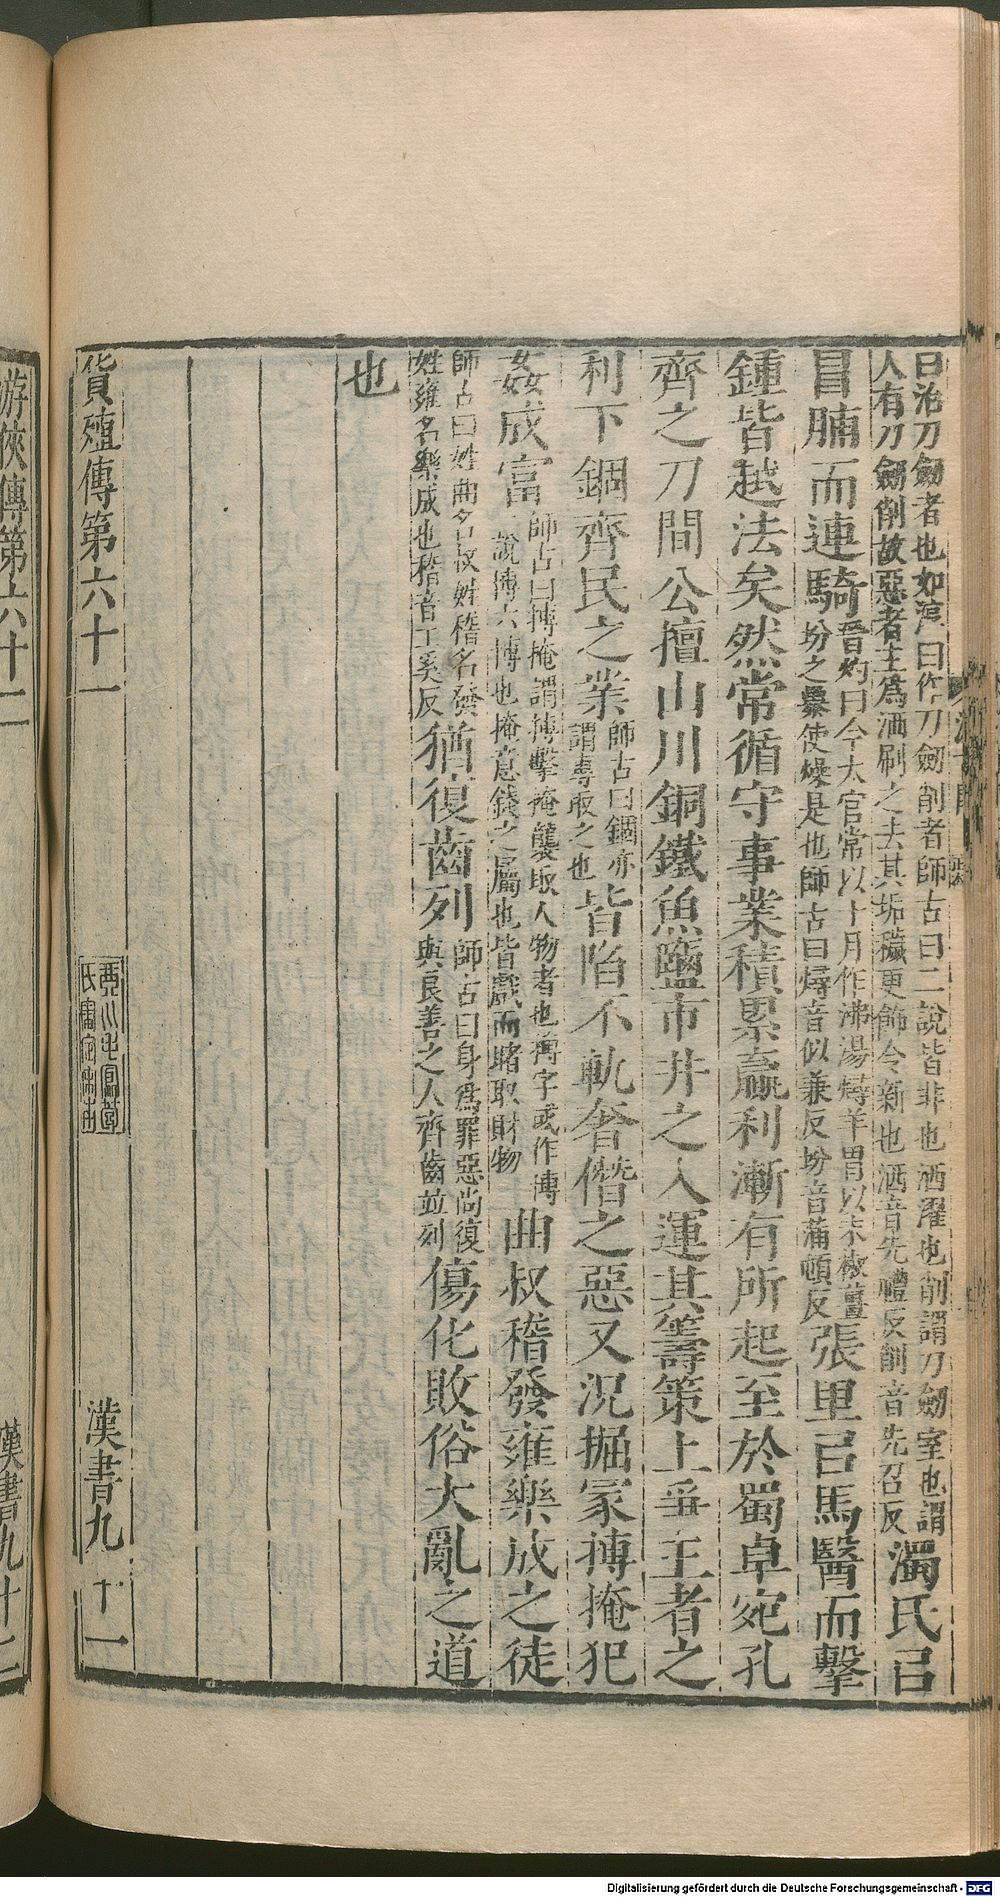 曰治刀劒者也如淳曰作刀劒削者師古曰二說皆非也洒濯也削謂刀劒室也謂
人有刀劒削故惡者主爲洒刷之去其垢穢更飾令新也洒音先禮反削音先召反
濁氏㠯
胃脯而連騎
晉灼曰今太官常以十月作沸湯燖羊胃以末椒薑
坋之暴使燥是也師古曰燖音似兼反坋音蒲頓反
張里㠯馬醫而擊
鍾皆越法矣然常循守事業積累贏利漸有所起至於蜀卓宛孔
齊之刀間公擅山川銅鐵魚鹽市井之入運其籌策上爭王者之
利下錮齊民之業
師古曰錮亦
謂專取之也
皆陷不軌奢僭之惡又況掘冢搏掩犯
姦成富
師古曰搏掩謂搏擊掩襲取人物者也搏字或作博
說博六博也掩意錢之屬也皆戲而賭取財物
曲叔稽發雍樂成之徒
師古曰姓曲名叔姓稽名發
姓雍名樂成也稽音工奚反
猶復齒列
師古曰身爲罪惡尚復
與良善之人齊齒並列
傷化敗俗大亂之道
也
貨殖傳第六十一
漢書九十一
游俠傳第六十二
漢書九十二
Digitalisierung gefördert durch die Deutsche Forschungsgemeinschaft - DFG